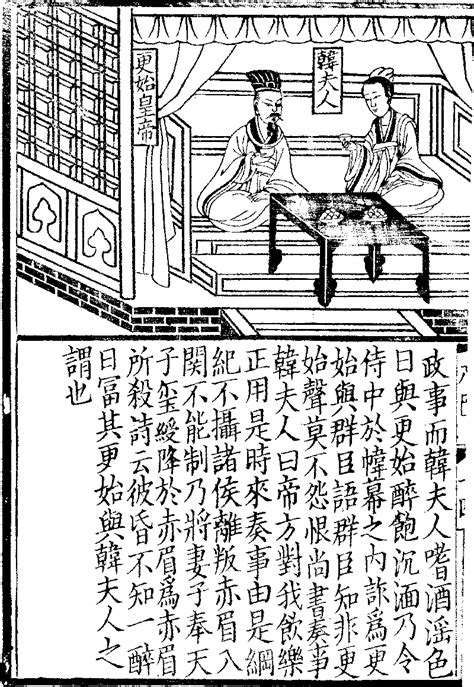 韓夫人
更始皇帝
政事而韓夫人嗜酒滛色
日與更始醉飽沉湎乃令
侍中於幃幕之内詐爲更
始與群臣語群臣知非更
始聲莫不怨恨尚書奏事
韓夫人曰帝方對我飲樂
正用是時來奏事由是綱
紀不攝諸侯離叛赤眉入
關不能制乃將妻子奉天
子璽綬降於赤眉爲赤眉
所殺詩云彼昏不知一醉
日冨其更始與韓夫人之
謂也